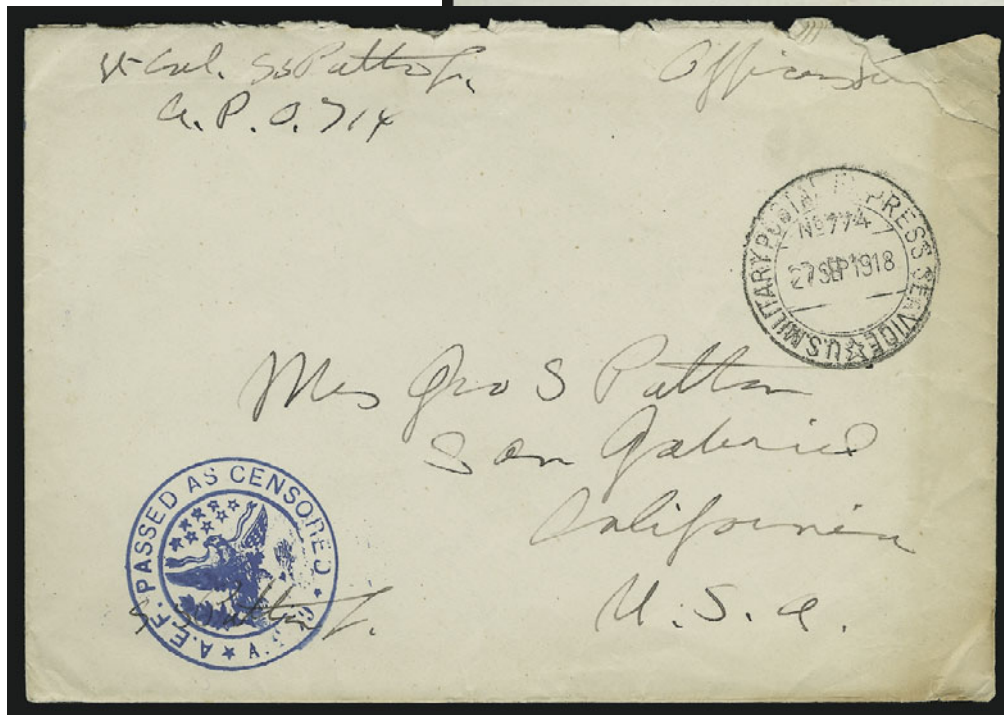 Lt Col. GS Patton Jr.
Officers Mail
A. P. O. 714
U.S. MILITARY POSTAL EXPRESS SERVICE
No 774
27 SEP 1918
Mrs Geo S Patton
San Gabriel
California
U. S. A.
A.E.F. PASSED AS CENSORED
G S Patton Jr.